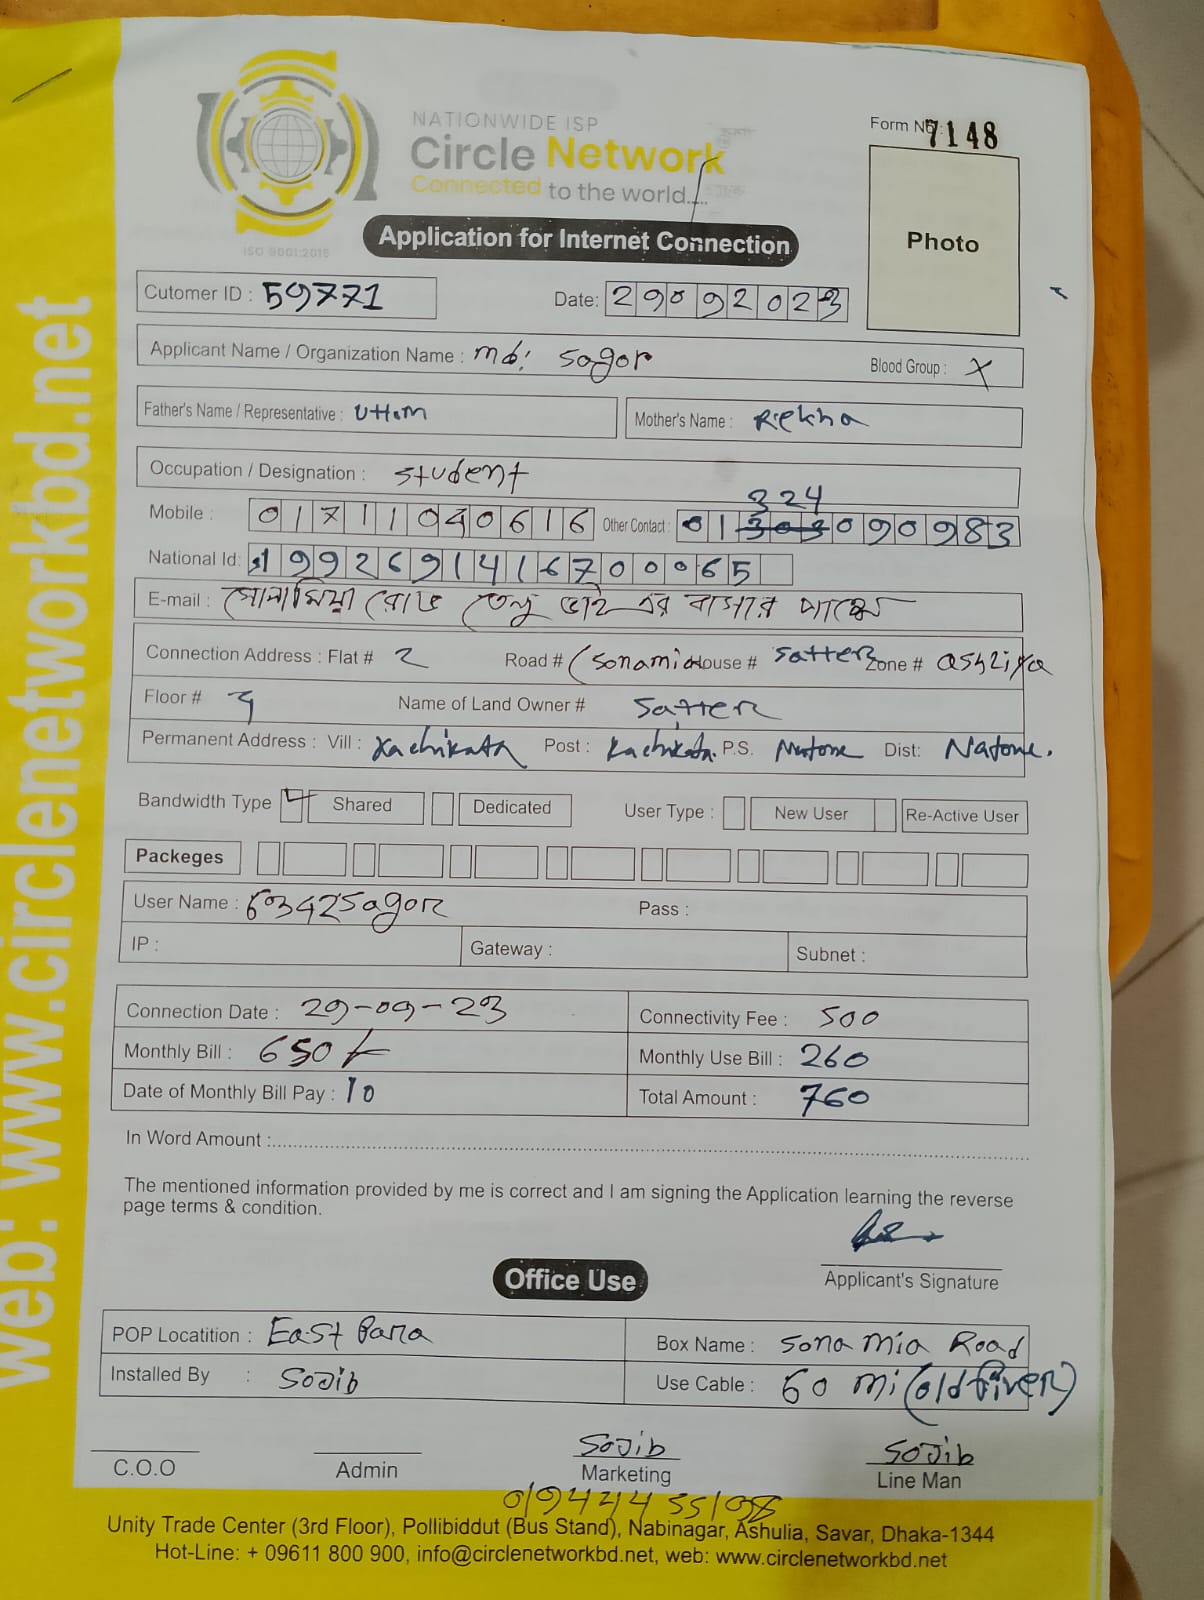 web: www.circlenetworkbd.net
NATIONWIDE ISP
Circle Network
Connected to the world.....
ISO 9001:2015
Form No: 7148
Photo
Application for Internet Connection
Cutomer ID : 59771 Date: 29092023
Applicant Name / Organization Name : md: sagor Blood Group : X
Father's Name / Representative : Uttom Mother's Name : Rekha
Occupation / Designation : student
324
Mobile : 01711040616 Other Contact : 01303090983
National Id: 19926914167000065
E-mail : সোনামিয়া রোড তনু ভাই এর বাসার পাশে
Connection Address : Flat # 2 Road # (Sonamia House # Satter Zone # ashliya
Floor # 3 Name of Land Owner # Satter
Permanent Address : Vill : Kachikata Post : Kachikata P.S. Natore Dist: Natore.
Bandwidth Type Shared Dedicated User Type : New User Re-Active User
Packeges
User Name : 60342Sagor Pass :
IP : Gateway : Subnet :
Connection Date : 29-09-23 Connectivity Fee : 500
Monthly Bill : 650 Monthly Use Bill : 260
Date of Monthly Bill Pay : 10 Total Amount : 760
In Word Amount :
The mentioned information provided by me is correct and I am signing the Application learning the reverse
page terms & condition.
Applicant's Signature
Office Use
POP Locatition : East Para Box Name : Sona mia Road
Installed By : Sojib Use Cable : 60 mi (old fiver)
Sojib Sojib
C.O.O Admin Marketing Line Man
Unity Trade Center (3rd Floor), Pollibiddut (Bus Stand), Nabinagar, Ashulia, Savar, Dhaka-1344
Hot-Line: + 09611 800 900, info@circlenetworkbd.net, web: www.circlenetworkbd.net